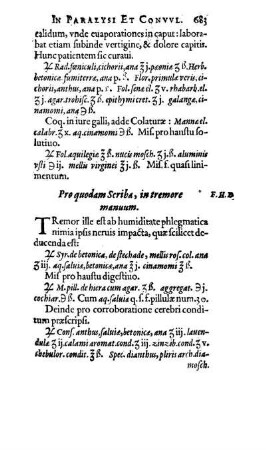 IN PARALYSI ET CONVUL. 683
calidum, vnde euaporationes in caput: labora-
bat etiam subinde vertigine, & dolore capitis.
Hunc patientem sic curaui.
℞ Rad. fœniculi, cichorii, ana ʒ j. pæoniæ ʒ ß. Herb.
betonicæ. fumiterræ, ana p. s. Flor. primulæ veris, ci-
chorii, anthus, ana p. s. Fol. senæ el. ʒ v. rhabarb. el.
ʒ j. agar. trochisc. ʒ ß. epithymi cret. ʒ j. galangæ, ci-
namomi, ana ℈ ß.
Coq. in iure galli, adde Colaturæ: Mannæ el.
calabr. ʒ x. aq. cinamomi ℈ ß. Mis. pro haustu so-
lutiuo.
℞ Fol. aquilegiæ ʒ ß. nucis mosch. ʒ j. ß. aluminis
vsti ℈ ij. mellis virginei ʒ j. ß. Mis. f. quasi lini-
mentum.
Pro quodam Scriba, in tremore
manuum.
F. H. D.
TRemor ille est ab humiditate phlegmatica
nimia ipsis neruis impacta, quæ scilicet de-
ducenda est:
℞ Syr. de betonica, de stechade, mellis ros. col. ana
ʒ iij. aq. saluiæ, betonicæ, ana ℥ j. cinamomi ʒ ß.
Mis. pro haustu digestiuo.
℞ M. pill. de hiera cum agar. ʒ ß. aggregat. ℈ j.
cochiar. ℈ ß. Cum aq. saluiæ q. s. f. pillulæ num. 30.
Deinde pro corroboratione cerebri condi-
tum præscripsi.
℞ Cons. anthus, saluiæ, betonicæ, ana ʒ iij. lauen-
dulæ ʒ ij. calami aromat. cond. ʒ iij. zinzib. cond. ʒ v.
chebulor. condit. ʒ ß. Spec. dianthus, pleris arch. dia-
mosch.